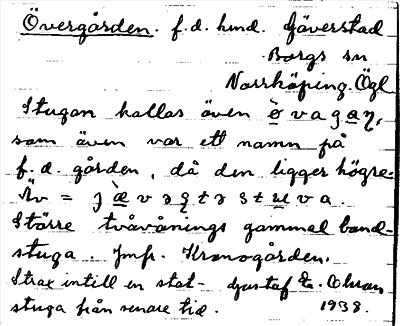 Övergården. f.d. hmd. Gäverstad
Borgs sn
Norrköping. Ögl
Stugan kallas även ö̀ v a g a ɳ,
som även var ett namn på
f.d. gården, då den ligger högre.
Äv = j æ̀ v ə ʂ t ə s t u v a.
Större tvåvånings gammal bond-
stuga. Jmfr. Kronogården.
Strax intill en stat- Gustaf E. Ohman
stuga från senare tid. 1938.